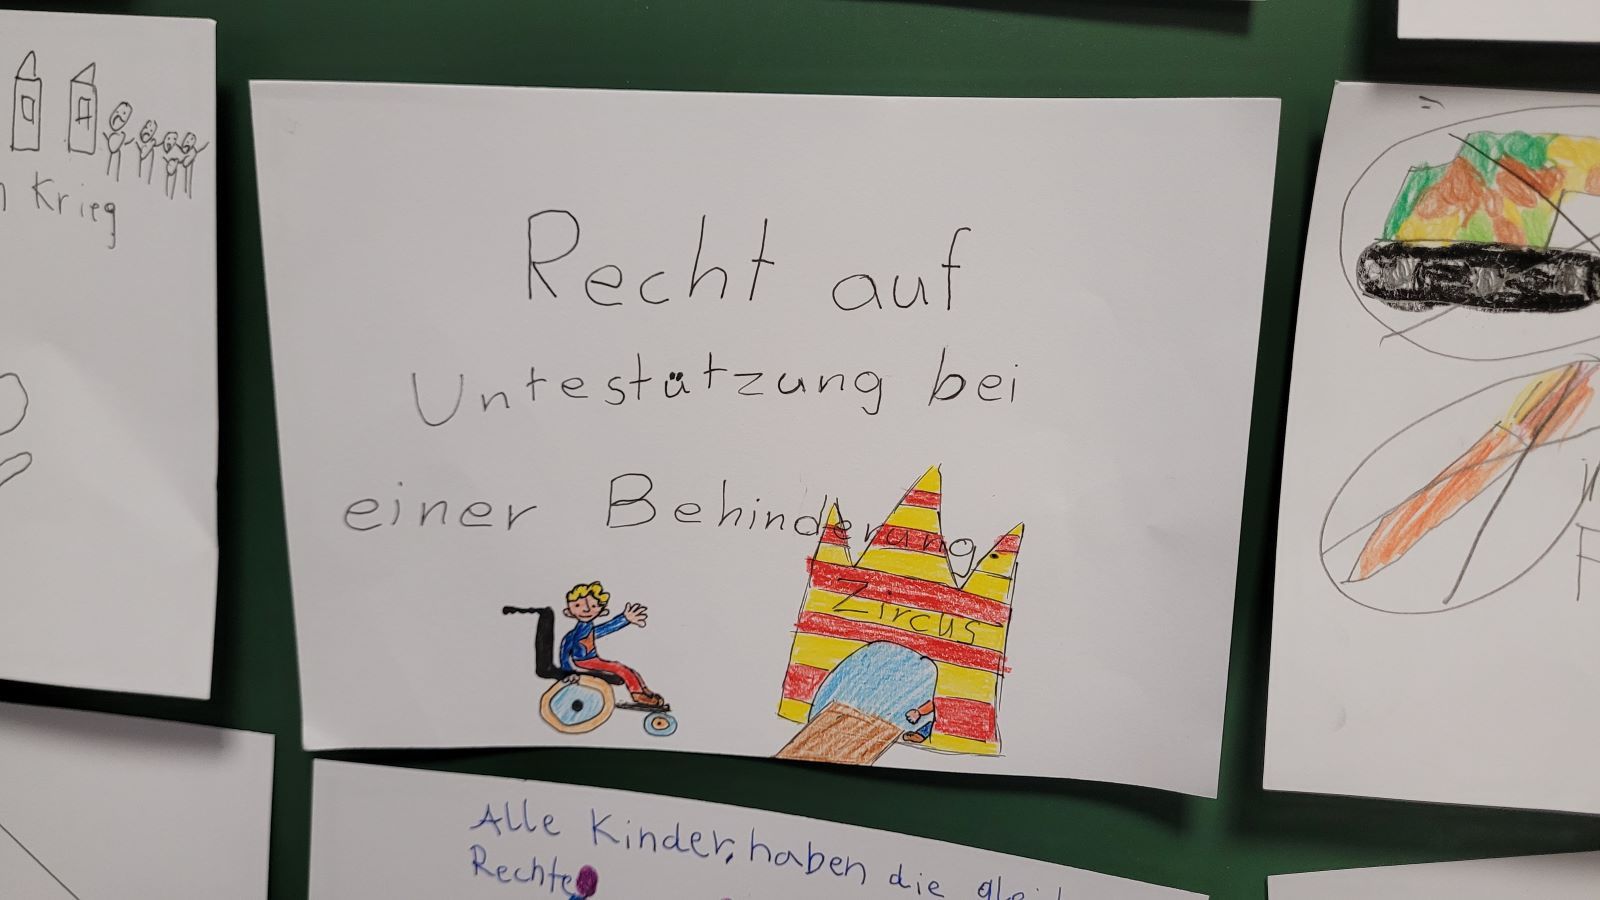 Krieg
Recht auf
Untestützung bei
einer Behinderung
Zircus
Alle Kinder, haben die
Rechte